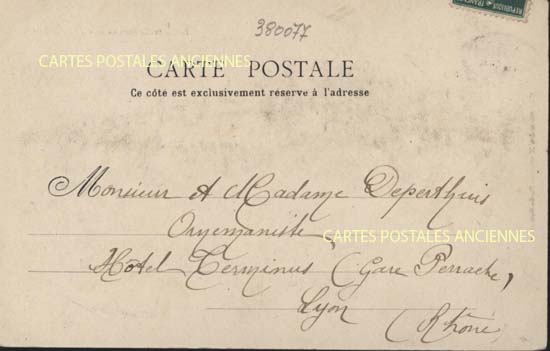 380077
REPUBLIQUE FRANC
CARTES POSTALES ANCIENNES
CARTE POSTALE
Ce côté est exclusivement réservé à l'adresse
Monsieur et Madame Deperthuis
CARTES POSTALES ANCIENNES
Hôtel Terminus (Gare Perrache,
Lyon
(Rhône)